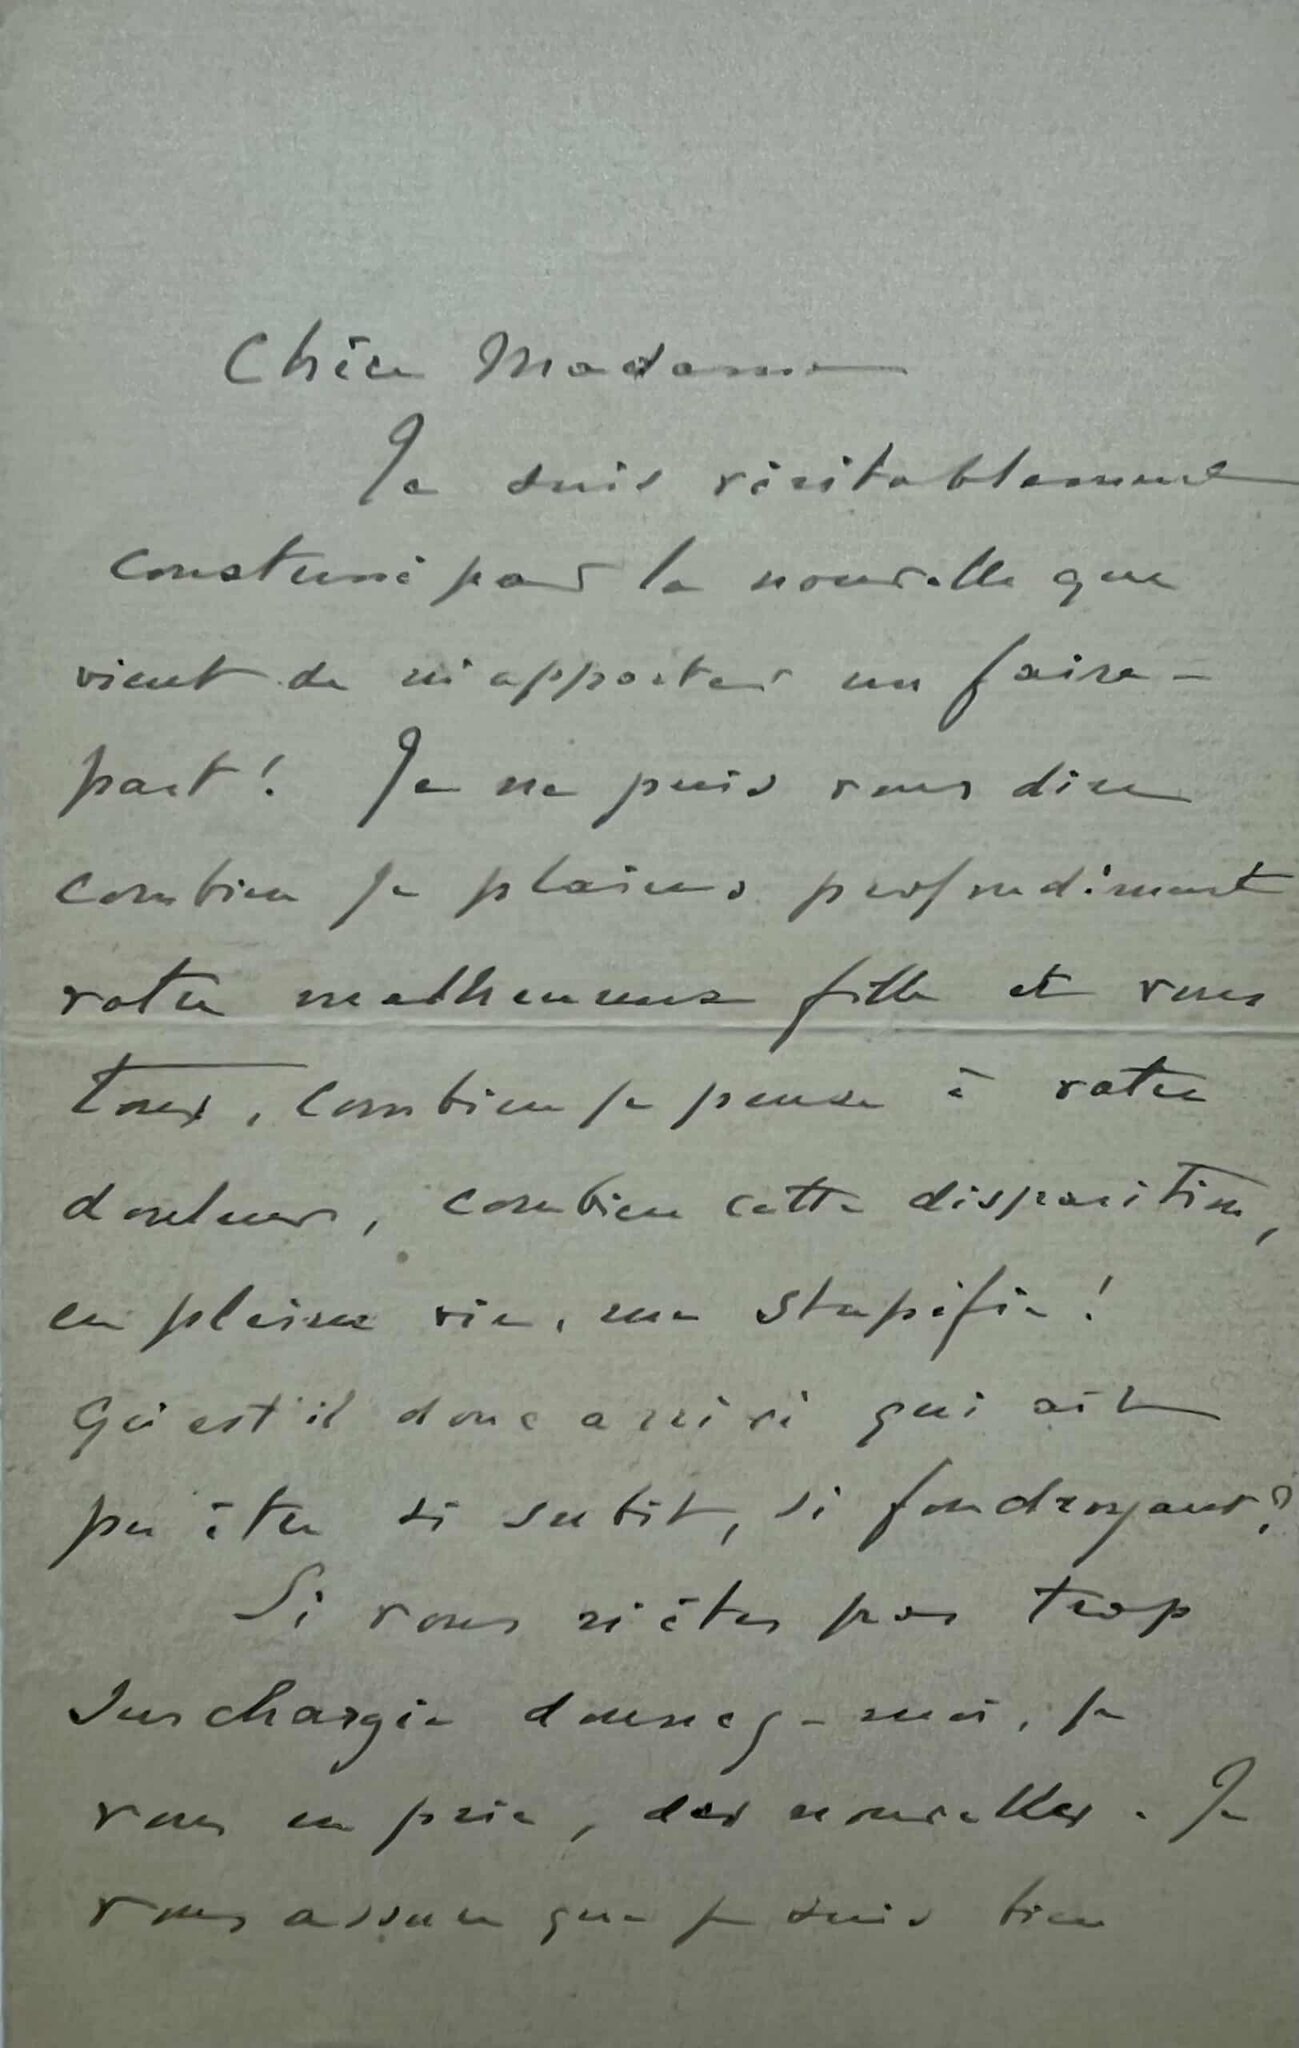 Chère Madame
Je suis véritablement
consterné par la nouvelle que
vient de m'apporter un faire-
part ! Je ne puis vous dire
combien je plains profondément
votre malheureuse fille et vous
tous, combien je pense à votre
douleur, combien cette disparition,
en pleine vie, me stupéfie !
Qu'est'il donc arrivé qui ait
pu être si subit, si foudroyant ?
Si vous n'êtes pas trop
surchargée donnez-moi, je
vous en prie, des nouvelles. Je
vous assure que je suis bien